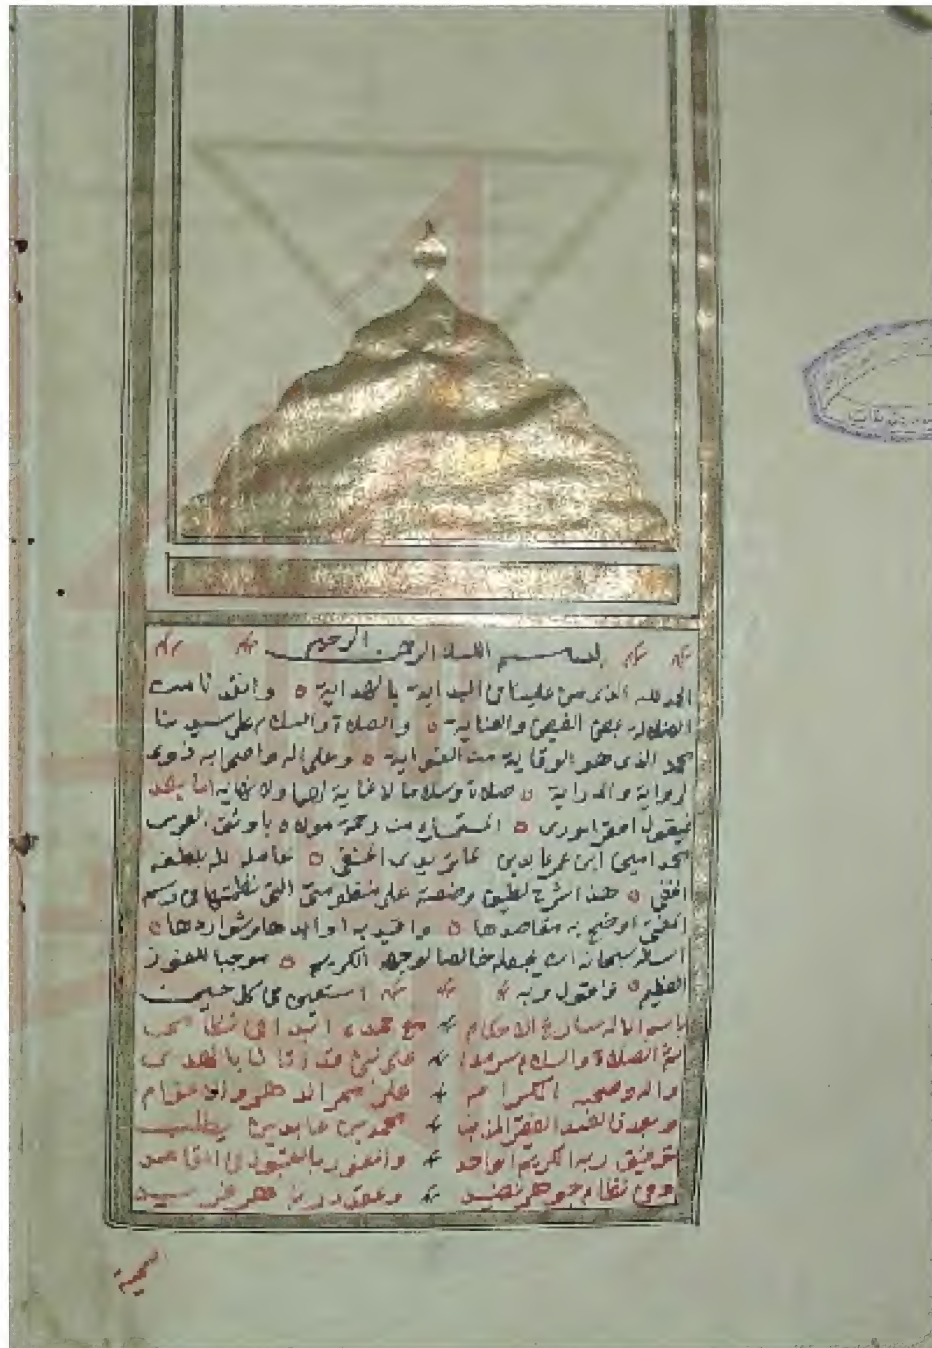 بسم الله الرحمن الرحيم
الحمد لله الذي من علينا في البداية بالهداية ٥ وانقذنا من
الضلالة بمحض الفيض والعناية ٥ والصلاة والسلام على سيدنا
محمد الذي هو الوقاية من الغواية ٥ وعلى اله واصحابه ذوي
الرواية والدراية ٥ صلاة وسلاما لا غاية لهما ولا نهاية اما بعد
فيقول افقر الورى ٥ المستمسك من رحمة مولاه باوثق العرى
محمد امين ابن عمر عابدين الماتريدي الحنفي ٥ عامله الله بلطفه
الخفي ٥ هذا شرح لطيف وضعته على منظومتي التي نظمتها في رسم
المفتي اوضح به مقاصدها ٥ واقيد به اوابدها وشواردها ٥
اسأله سبحانه ان يجعله خالصا لوجهه الكريم ٥ موجبا للفوز
العظيم ٥ فاقول وبه استعين في كل حين
باسم الاله شارع الاحكام مع حمده ابدأ في نظامي
ثم الصلاة والسلام سرمدا على نبي قد اتانا بالهدى
واله وصحبه الكرام على ممر الدهر والاعوام
وبعد فالعبد الفقير المذنب محمد بن عابدين يطلب
توفيق ربه الكريم الواحد والفوز بالقبول في المقاصد
وفي نظام جوهر نضيد وعقد در باهر فريد